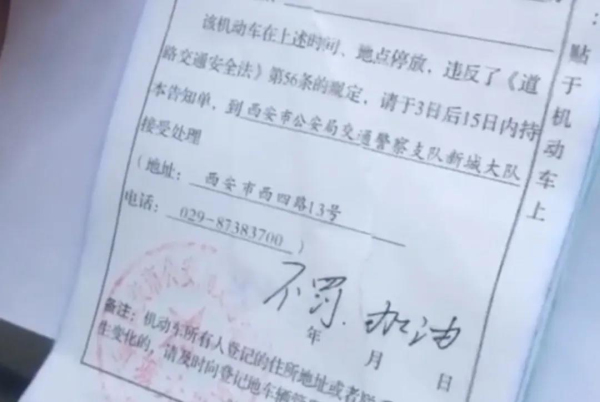 该机动车在上述时间、地点停放，违反了《道
路交通安全法》第56条的规定，请于3日后15日内持
本告知单，到西安市公安局交通警察支队新城大队
接受处理
（地址：西安市西四路13号
电话：029-87383700）
不罚.加油
年 月 日
备注：机动车所有人登记的住所地址或者
生变化的，请及时向登记地车辆管
贴于机动车上